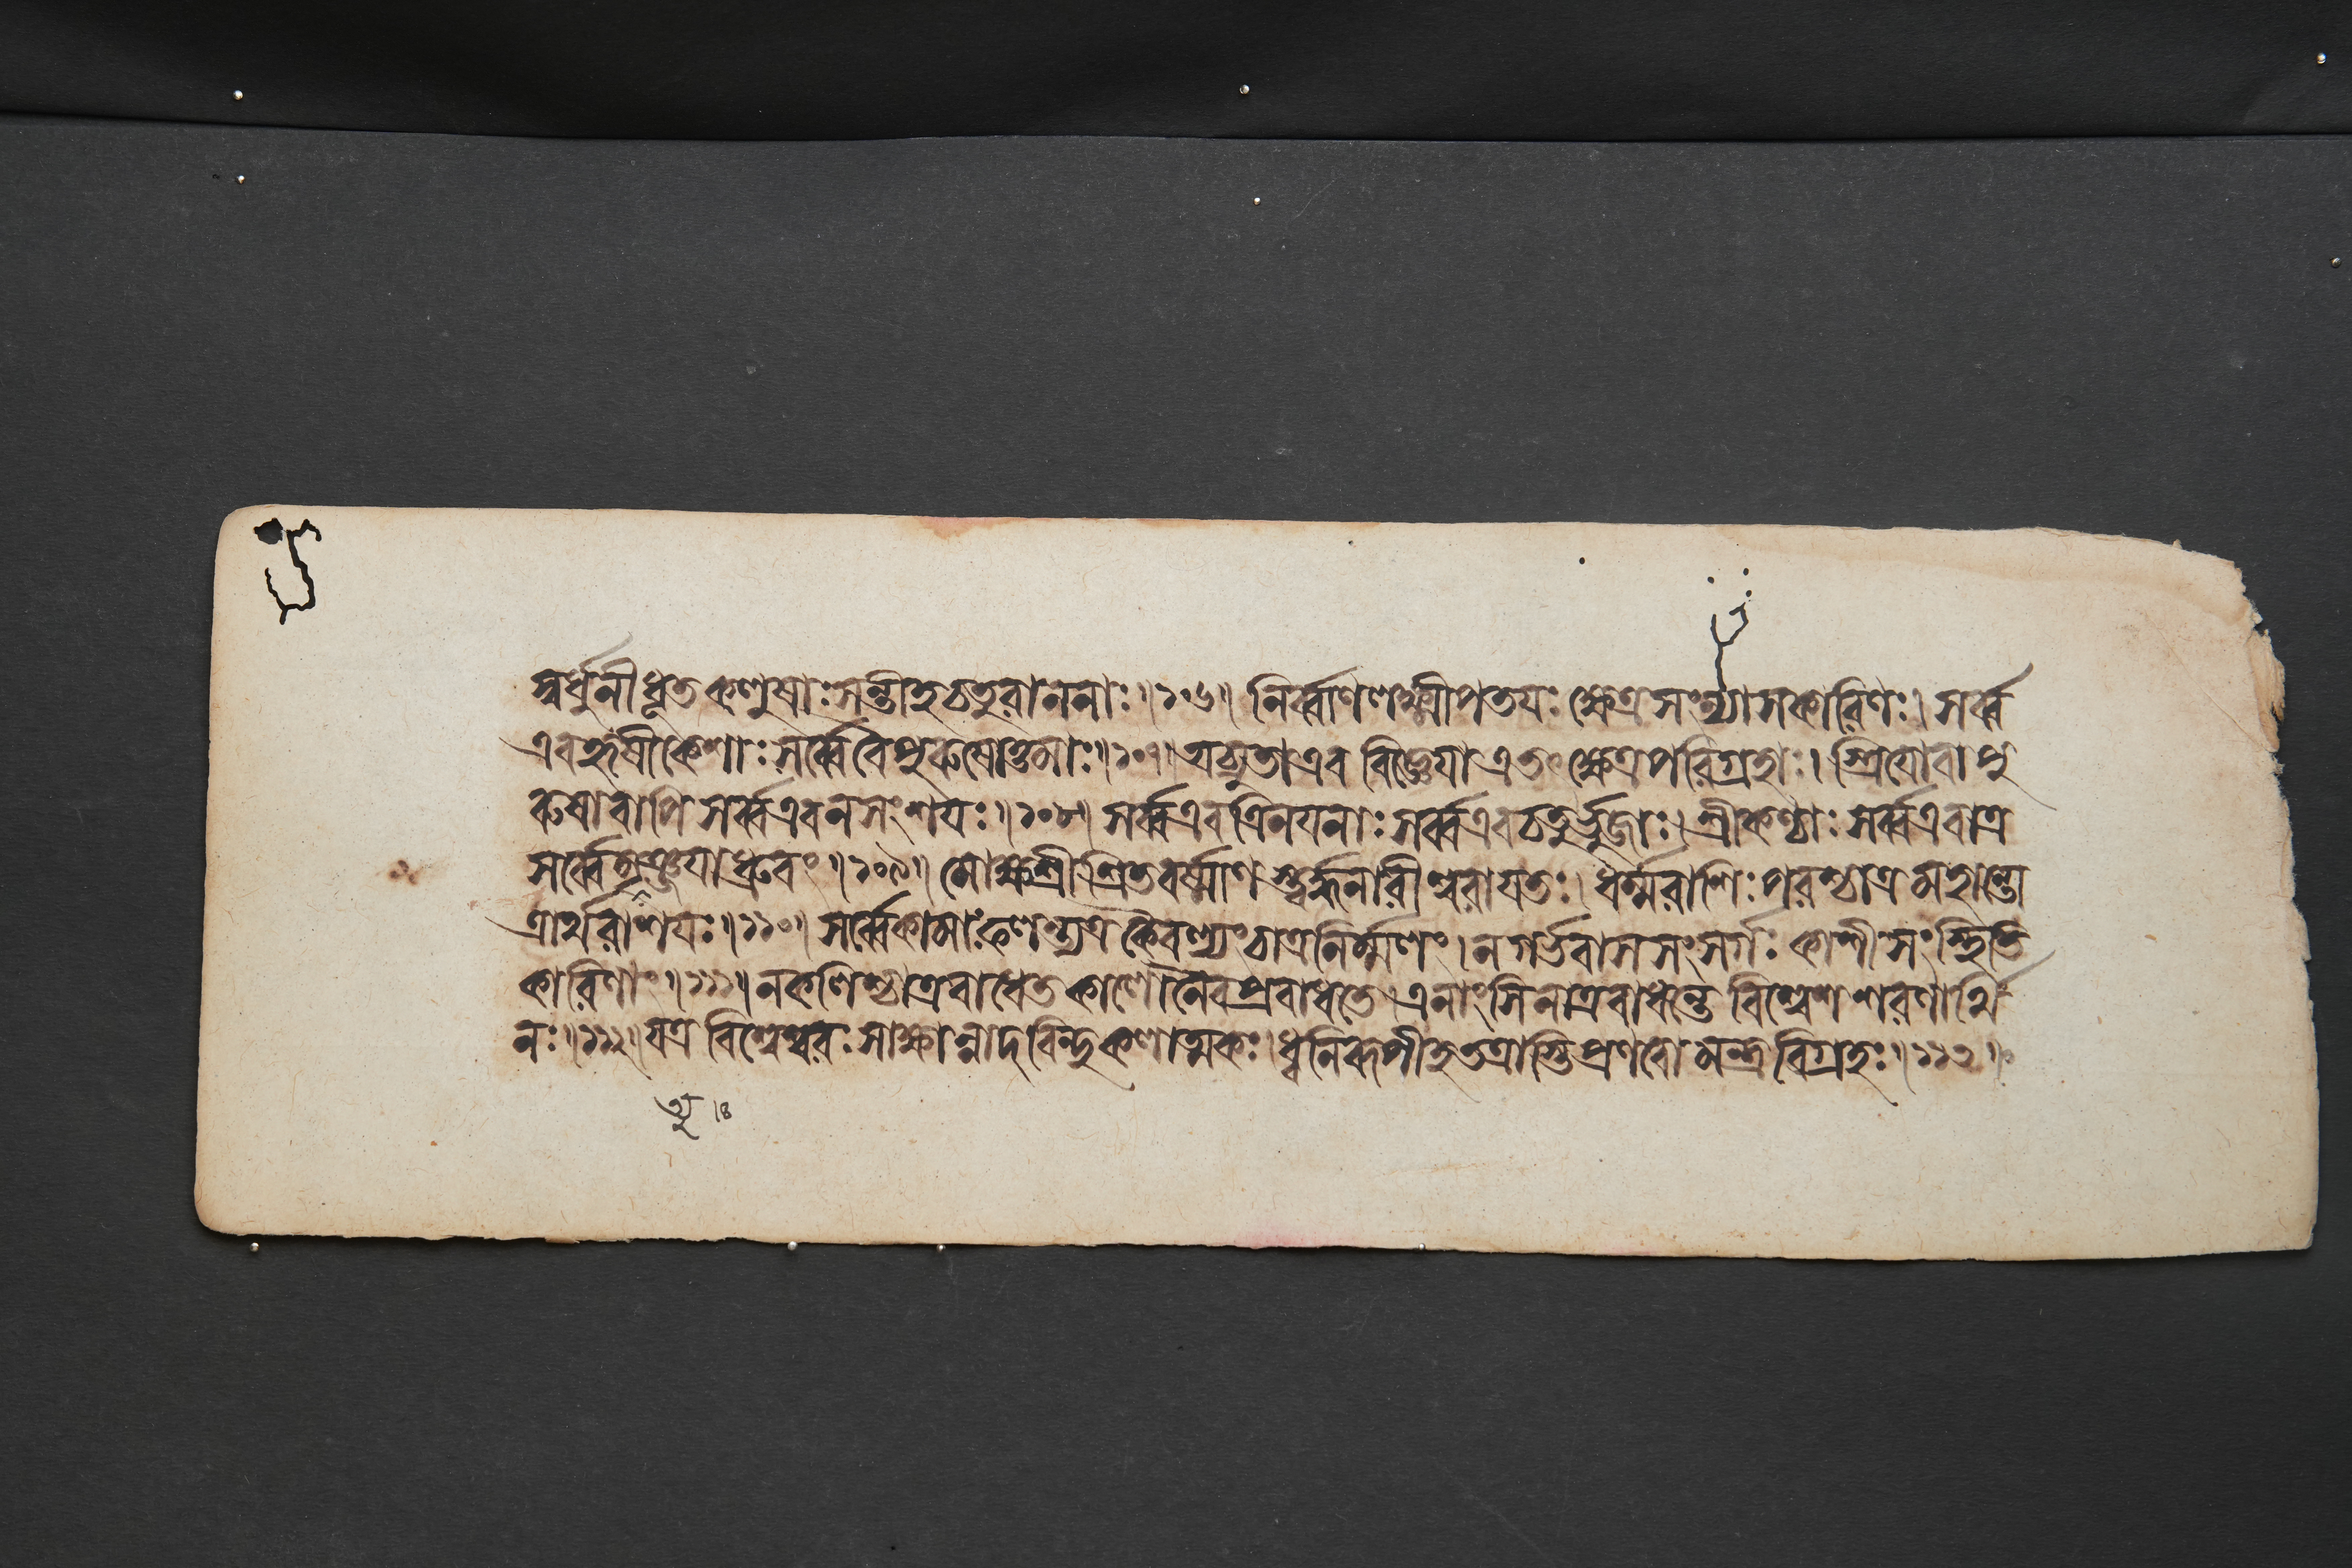 স্বর্ধুনীধূতকলুষাঃসন্তীহচতুরাননাঃ॥১০৬॥ নির্ব্বাণলক্ষ্মীপতযঃ ক্ষেত্রসংন্যাসকারিণঃ। সর্ব্ব
এবহৃষীকেশাঃসর্ব্বেবৈপুরুষোত্তমাঃ॥১০৭॥ অচ্যুতাএব বিজ্ঞেযাএতৎ ক্ষেত্রপরিগ্রহাঃ। স্ত্রিযোবাপু
রুষাবাপি সর্ব্বএবনসংশযঃ॥১০৮॥ সর্ব্বএবত্রিনযনাঃ সর্ব্বএবচতুর্ভুজাঃ। শ্রীকণ্ঠাঃ সর্ব্বএবাত্র
সর্ব্বেমৃত্যুঞ্জযাধ্রুবং॥১০৯॥ মোক্ষশ্রীশ্রিতবর্ষ্মাণ শ্চার্দ্ধনারীশ্বরাযতঃ। ধর্ম্মরাশিঃপরশ্চাত্র মহান্তো
ত্রার্থরাশযঃ॥১১০॥ সর্ব্বেকামাঃফলন্ত্যত্র কৈবল্যংচাত্রনির্ম্মলং। নগর্ভবাসসংসর্গঃ কাশীসংস্থিতি
কারিণাং॥১১১॥ নকলিশ্চাত্রবাধেত কালোনৈবপ্রবাধতে। এনাংসিনাত্রবাধন্তে বিশ্বেশশরণার্থি
নঃ॥১১২॥ যত্র বিশ্বেশ্বরঃ সাক্ষান্নাদবিন্দুকলাত্মকঃ। ধ্বনিরূপীহতত্রাস্তিপ্রণবো মন্ত্রবিগ্রহঃ॥১১৩॥